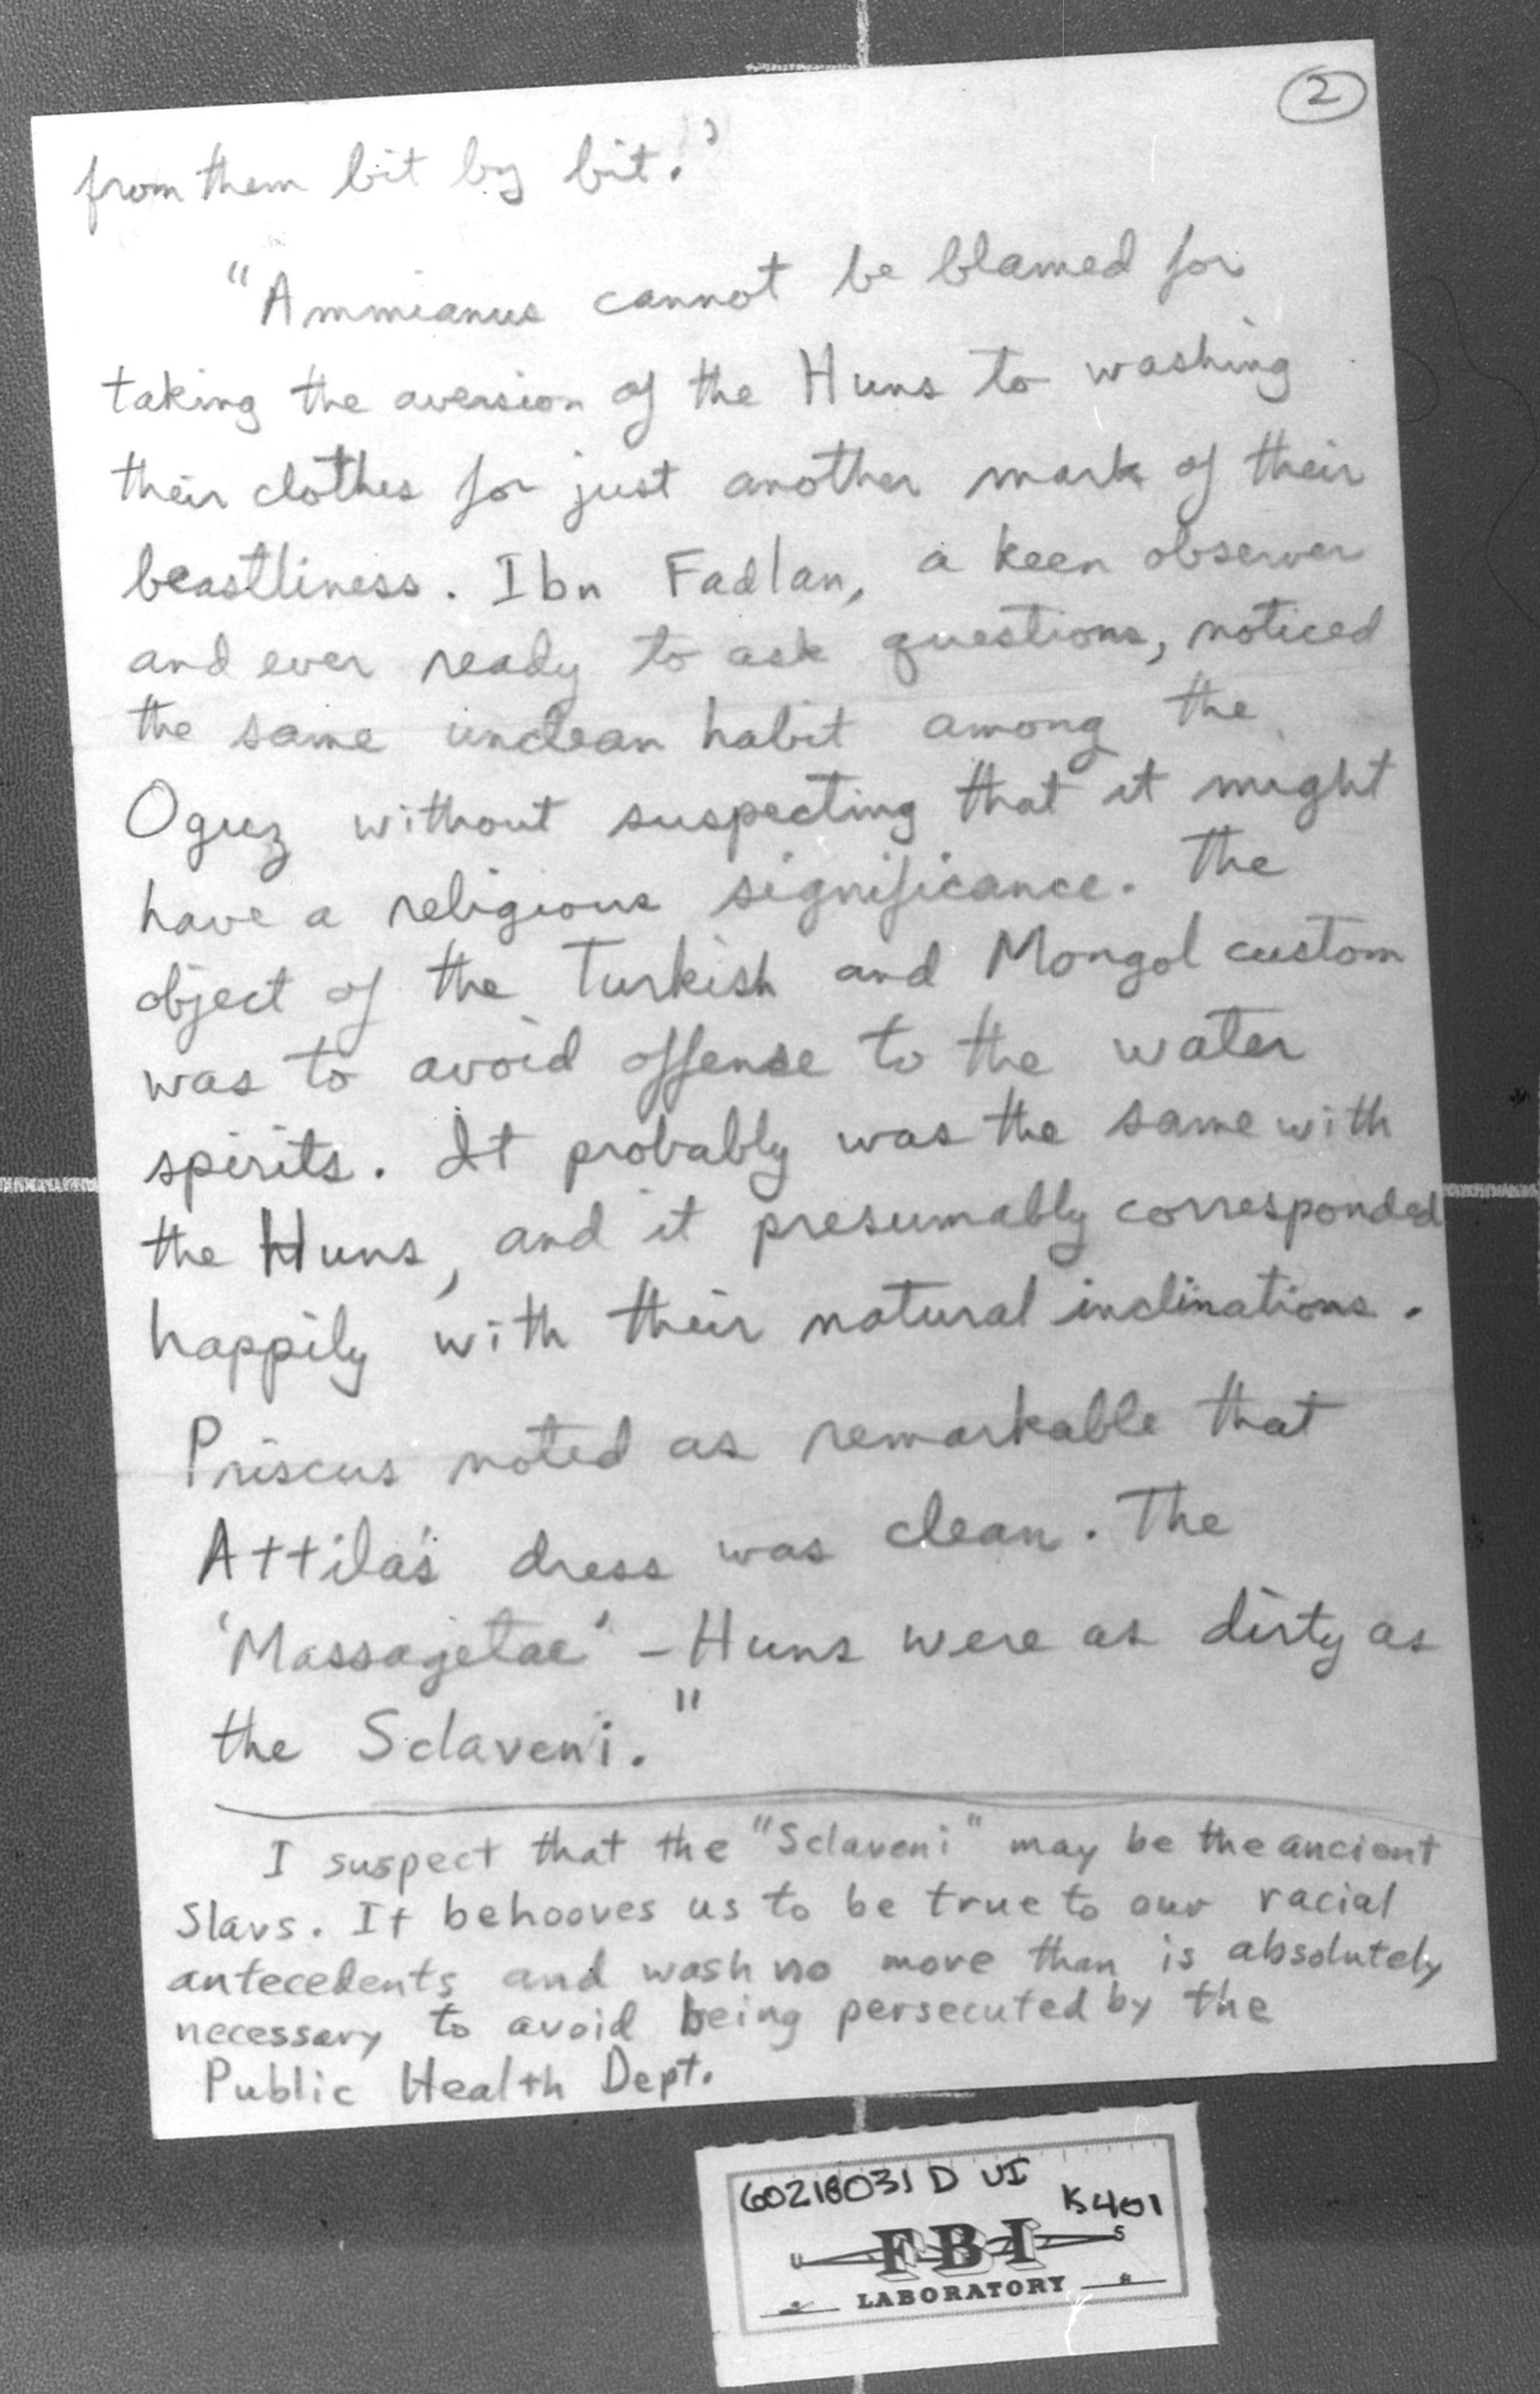 2
from them bit by bit.'
"Ammianus cannot be blamed for
taking the aversion of the Huns to washing
their clothes for just another mark of their
beastliness. Ibn Fadlan, a keen observer
and ever ready to ask questions, noticed
the same unclean habit among the
Oguz without suspecting that it might
have a religious significance. The
object of the Turkish and Mongol custom
was to avoid offense to the water
spirits. It probably was the same with
the Huns, and it presumably corresponded
happily with their natural inclinations.
Priscus noted as remarkable that
Attila's dress was clean. The
'Massagetae' - Huns were as dirty as
the Sclaveni."
I suspect that the "Sclaveni" may be the ancient
Slavs. It behooves us to be true to our racial
antecedents and wash no more than is absolutely
necessary to avoid being persecuted by the
Public Health Dept.
60218031 D UI
K401
U FBI S
LABORATORY